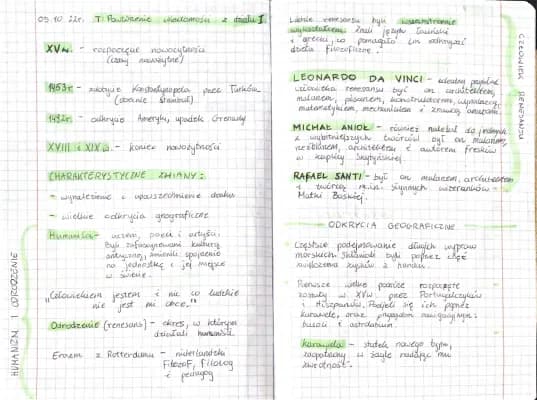 03.10.22r. T: Powtórzenie wiadomości z działu I
XVw. - rozpoczęcie nowożytności
(czasy nowożytne)
1453r - zdobycie Konstantynopola przez Turków
(obecnie Stambuł)
1492r. - odkrycie Ameryki, upadek Grenady
XVIII i XIX w. - koniec nowożytności
CHARAKTERYSTYCZNE ZMIANY:
- wynalezienie i upowszechnienie druku
- wielkie odkrycia geograficzne
Humaniści - uczeni, poeci i artyści.
Byli zafascynowani kulturą
antyczną, zmienili spojrzenie
na jednostkę i jej miejsce
w świecie.
"Człowiekiem jestem i nic co ludzkie
nie jest mi obce."
Odrodzenie (renesans) - okres, w którym
działali humaniści.
Erazm z Rotterdamu - niderlandzki
filozof, filolog
i pedagog
HUMANIZM I ODRODZENIE
Ludzie renesansu byli wszechstronnie
wykształceni. Znali języki łaciński
i grecki, co pomagało im odkrywać
dzieła filozoficzne.
LEONARDO DA VINCI - idealny przykład
człowieka renesansu był on architektem,
malarzem, pisarzem, konstruktorem, wynalazcą,
matematykiem, mechanikiem i znawcą anatomii.
MICHAŁ ANIOŁ - również należał do jednych
z wybitniejszych twórców był on malarzem,
rzeźbiarzem, architektem i autorem fresków
w kaplicy Sykstyńskiej.
RAFAEL SANTI - był on malarzem, architektem
i twórcą m.in. słynnych wizerunków
Matki Boskiej.
CZŁOWIEK RENESANSU
ODKRYCIA GEOGRAFICZNE
Częstsze podejmowanie długich wypraw
morskich. Skłaniały były poprzez chęć
zwiększenia zysków z handlu.
Pierwsze wielkie podróże rozpoczęte
zostały w XVw. przez Portugalczyków
i Hiszpanów. Podjęli się ich dzięki
karaweli, oraz przyrządom nawigacyjnym:
busoli i astrolabium.
karawela - statek nowego typu,
zaopatrzony w żagle nadające mu
zwrotność.